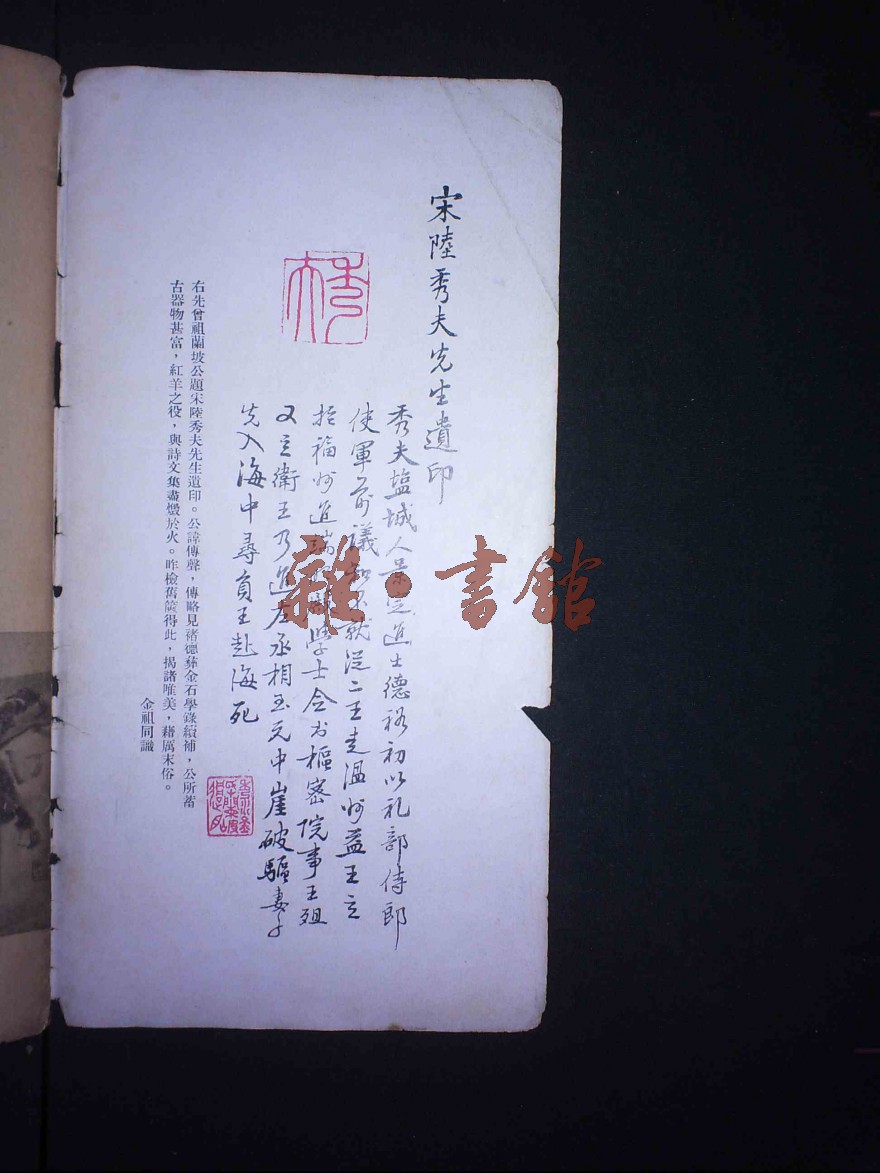 宋陸秀夫先生遺印
秀夫
秀夫塩城人景定進士德祐初以礼部侍郎
使軍前議和不就從二王走温州益王立
於福州進端明殿學士令书樞密院事王殂
又立衛王乃進左丞相至元中崖破驅妻子
先入海中尋負王赴海死
右先曾祖蘭坡公題宋陸秀夫先生遺印。公諱傳聲，傳略見褚德彝金石學錄續補，公所蓄
古器物甚富，紅羊之役，與詩文集盡燬於火。昨檢舊篋得此，揭諸唯美，藉厲末俗。
金祖同識
雜·書館